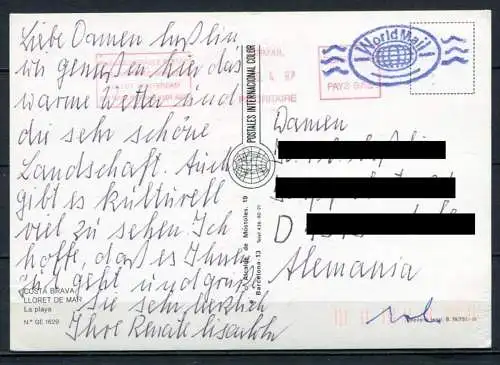 Liebe Damen
wir genießen hier das
warme Wetter und
die sehr schöne
Landschaft. Auch
gibt es kulturell
viel zu sehen. Ich
hoffe, daß es Ihnen
gut geht und grüße
Sie sehr herzlich
Ihre Renate
COSTA BRAVA
LLORET DE MAR
La playa
N.º GE 1629
POSTALES INTERNACIONAL COLOR
Alcalde de Móstoles, 19
Barcelona-13
4 87
PAYS-BAS
WorldMail
Damen
D
Alemania